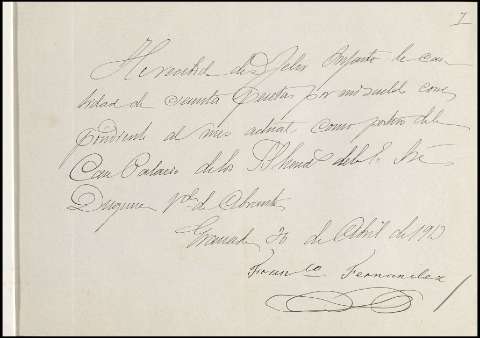 7
He recibido de D Felix Infante la can
tidad de cincuenta Pesetas por mi sueldo corres
pondiente al mes actual como portero de la
Casa Palacio de los de la E. Sra
Duquesa de Abrantes
Granada 30 de Abril de 191
Franco Fernandez